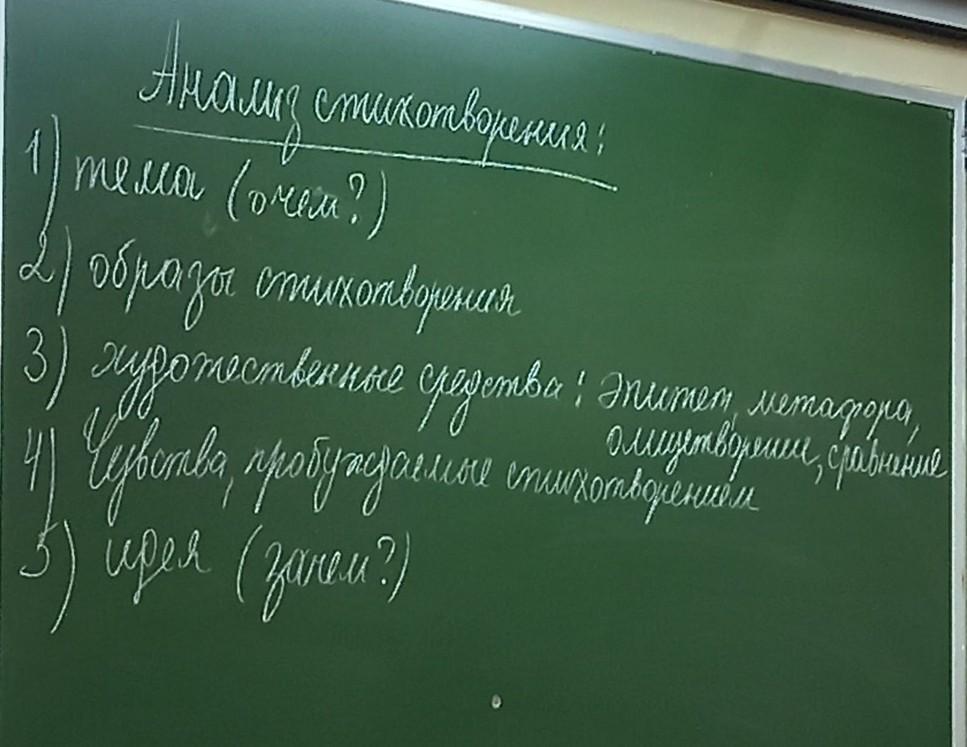 Анализ стихотворения:
1) тема (о чем?)
2) образы стихотворения
3) художественные средства: эпитет, метафора,
олицетворение, сравнение
4) Чувства, пробуждаемые стихотворением
5) идея (зачем?)